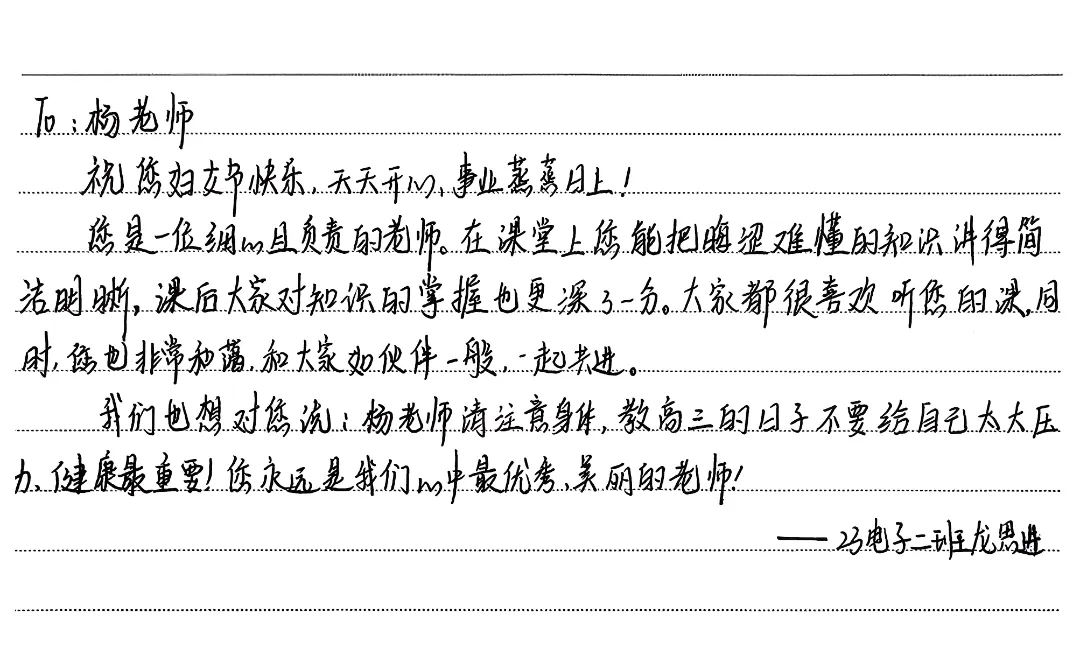 To：杨老师
祝您妇女节快乐，天天开心，事业蒸蒸日上！
您是一位细心且负责的老师。在课堂上您能把晦涩难懂的知识讲得简
洁明晰，课后大家对知识的掌握也更深了一分。大家都很喜欢听您的课，同
时，您也非常和蔼，和大家如伙伴一般，一起共进。
我们也想对您说：杨老师请注意身体，教高三的日子不要给自己太大压
力，健康最重要！您永远是我们心中最优秀、美丽的老师！
——23电子二班龙思进